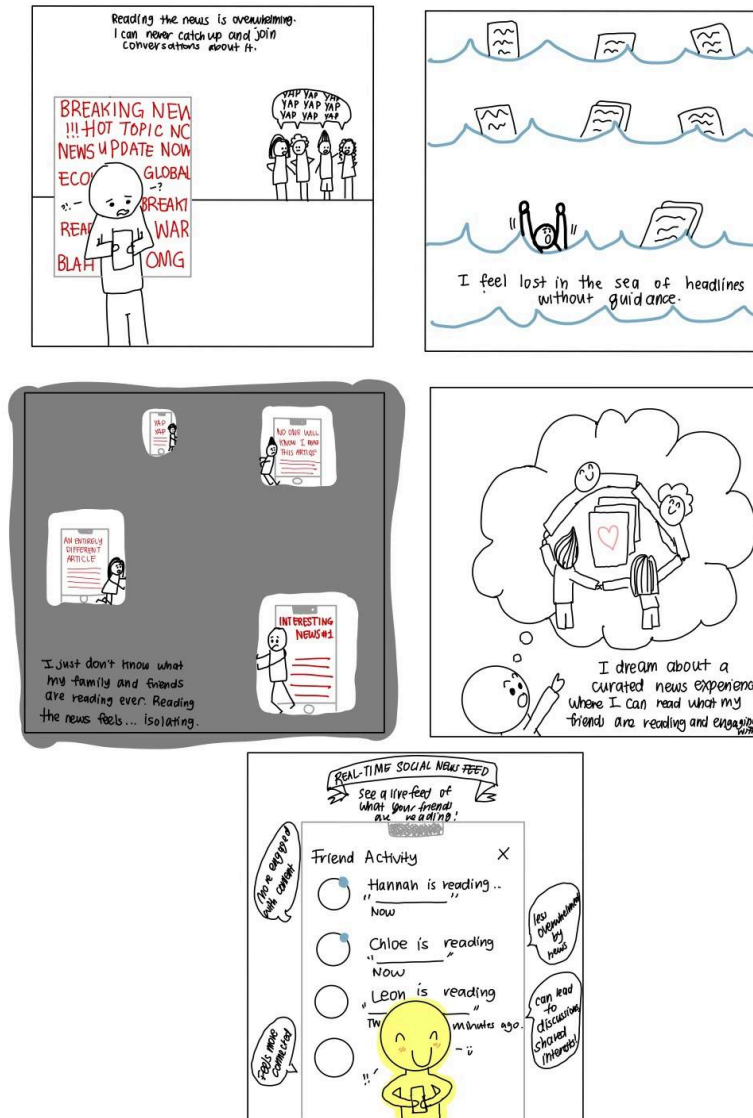 Reading the news is overwhelming.
I can never catch up and join
conversations about it.
YAP YAP YAP
YAP YAP YAP
YAP YAP YAP
BREAKING NEW
!!! HOT TOPIC NO
NEWS UPDATE NOW
ECO GLOBAL
!!- -?
BREAKI
REA WAR
BLAH OMG
I feel lost in the sea of headlines
without guidance.
YAP
YAP
NO ONE WILL
KNOW I READ
THIS ARTICLE
AN ENTIRELY
DIFFERENT
ARTICLE
INTERESTING
NEWS #1
I just don't know what
my family and friends
are reading ever. Reading
the news feels... isolating.
I dream about a
curated news experience
where I can read what my
friends are reading and engaging
with
REAL-TIME SOCIAL NEWS FEED
see a live feed of
what your friends
are reading!
more engaged
with content
Friend Activity X
Hannah is reading..
" "
NOW
less
overwhelmed
by
news
Chloe is reading
" "
NOW
Leon is reading
" "
TW minutes ago.
can lead
to
discussions,
shared
interests!
Feels more
connected
!!